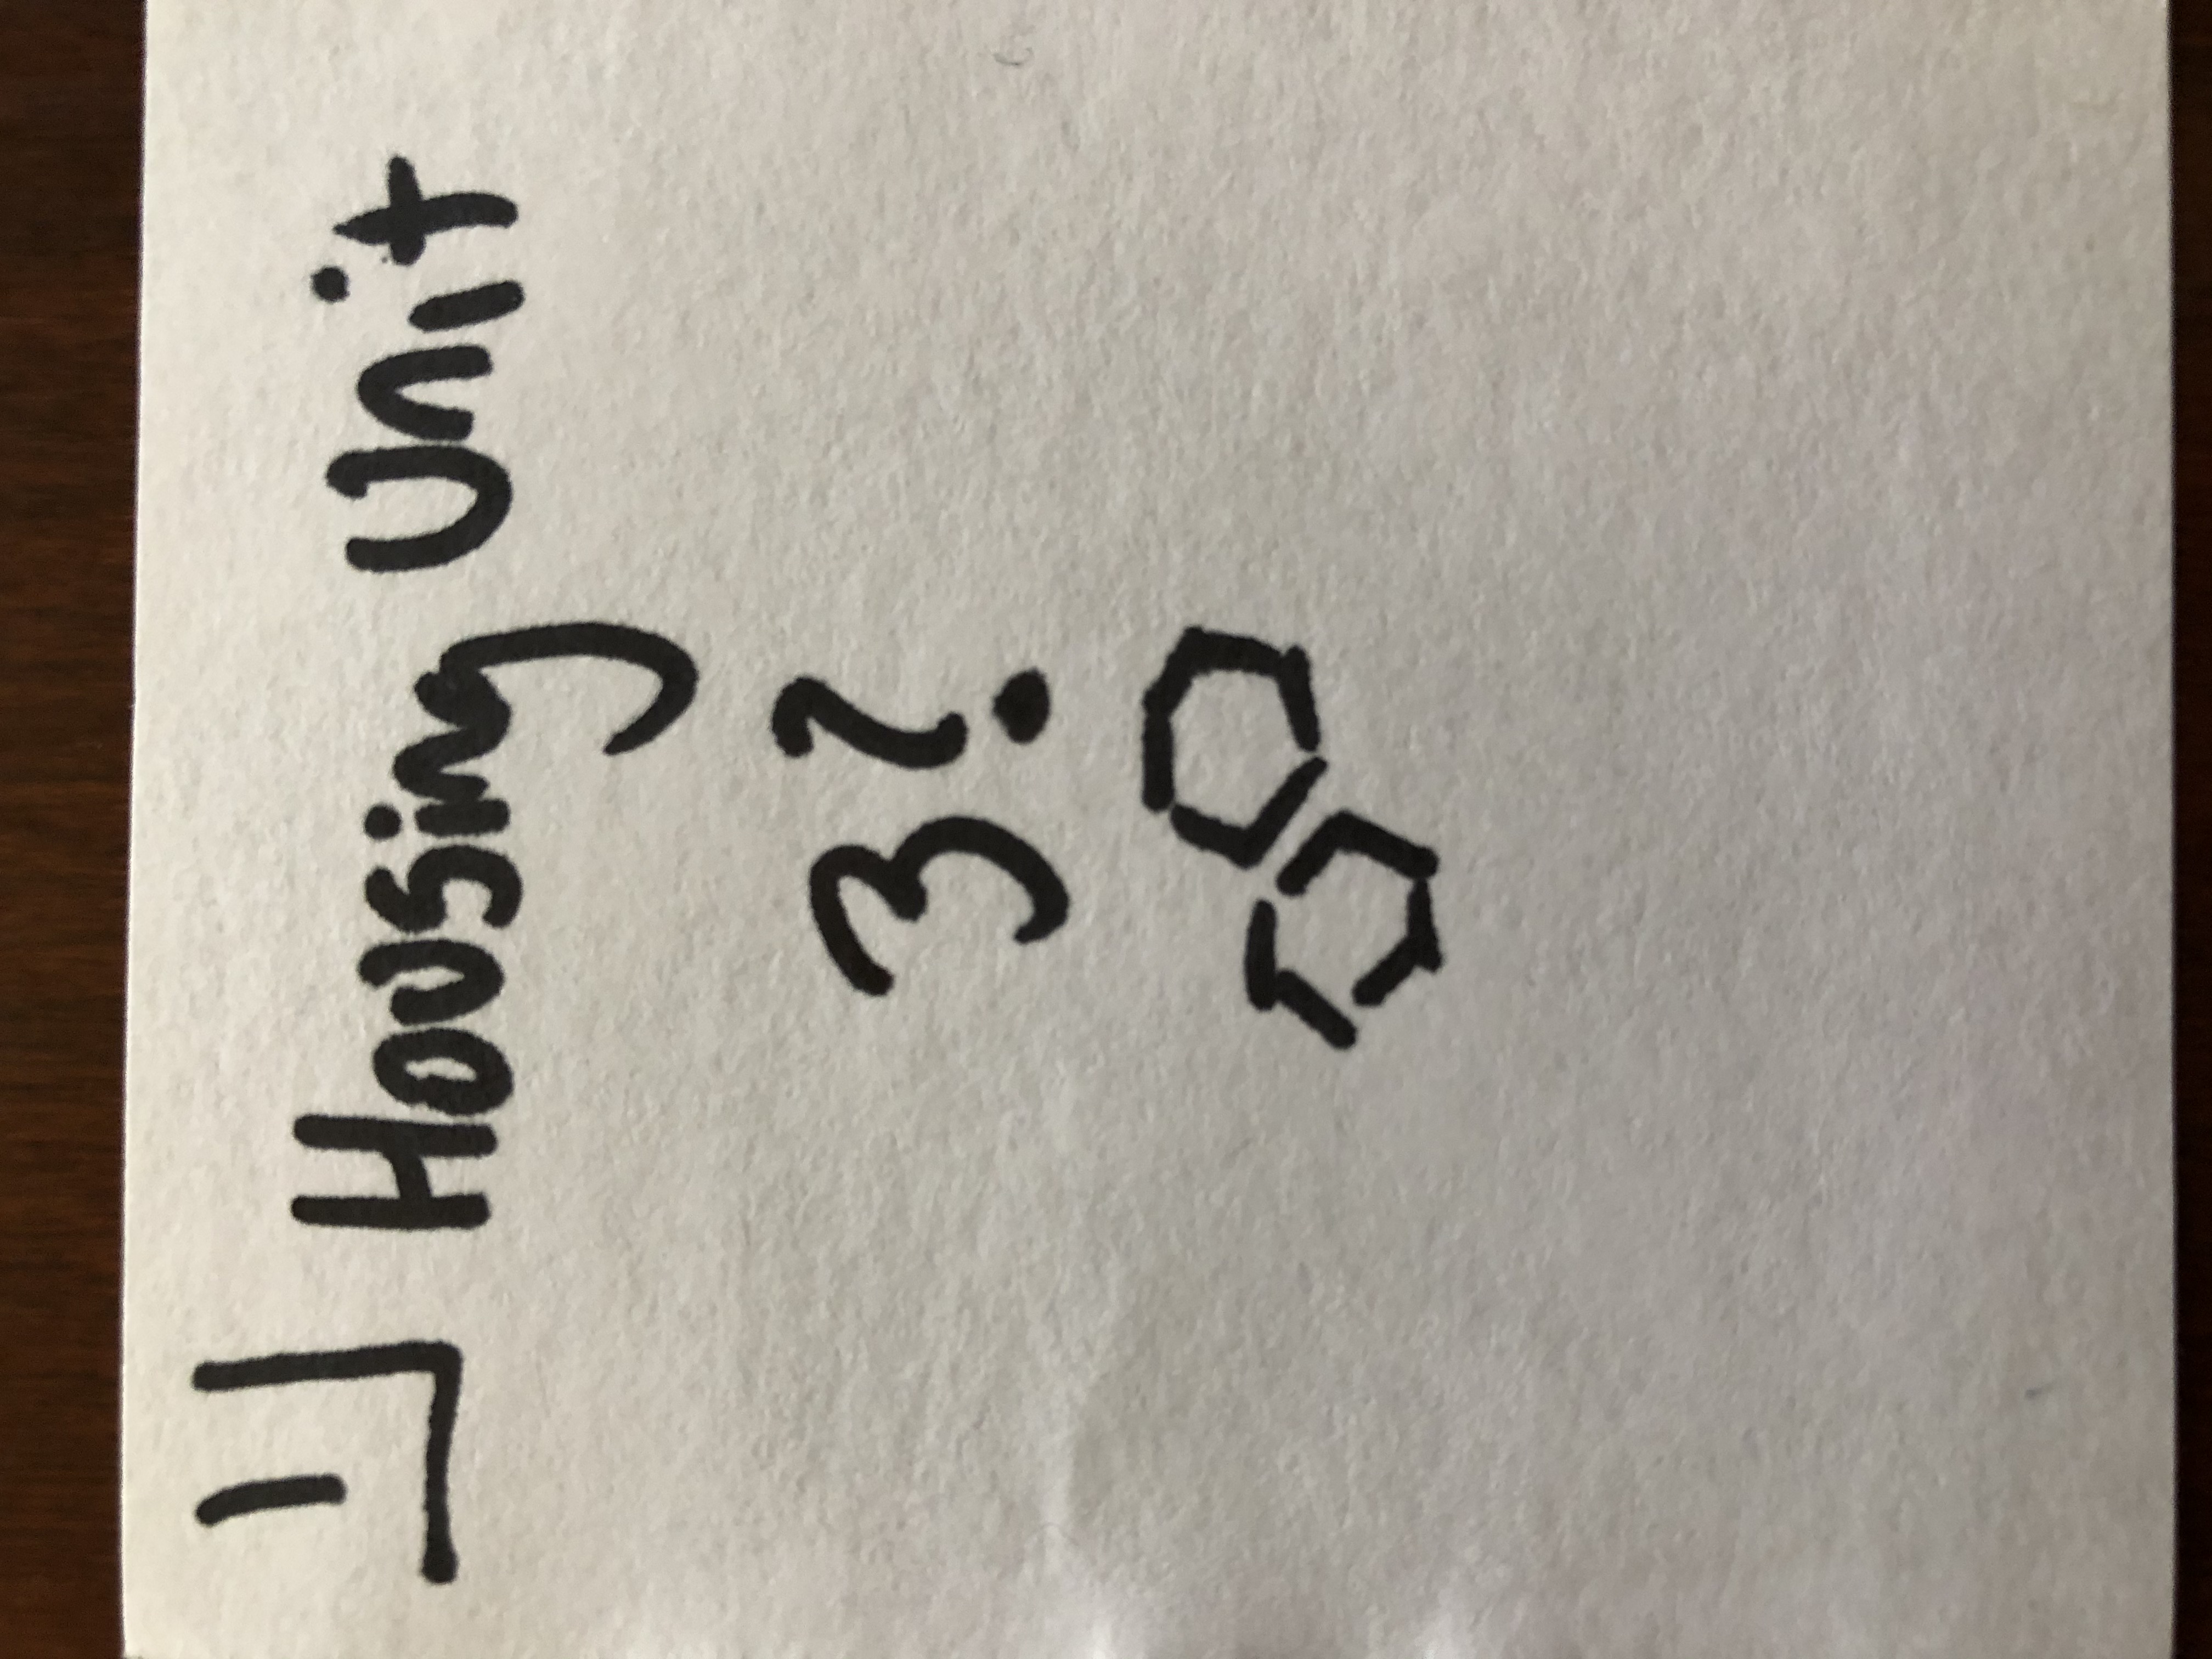 1 Housing Unit
3?